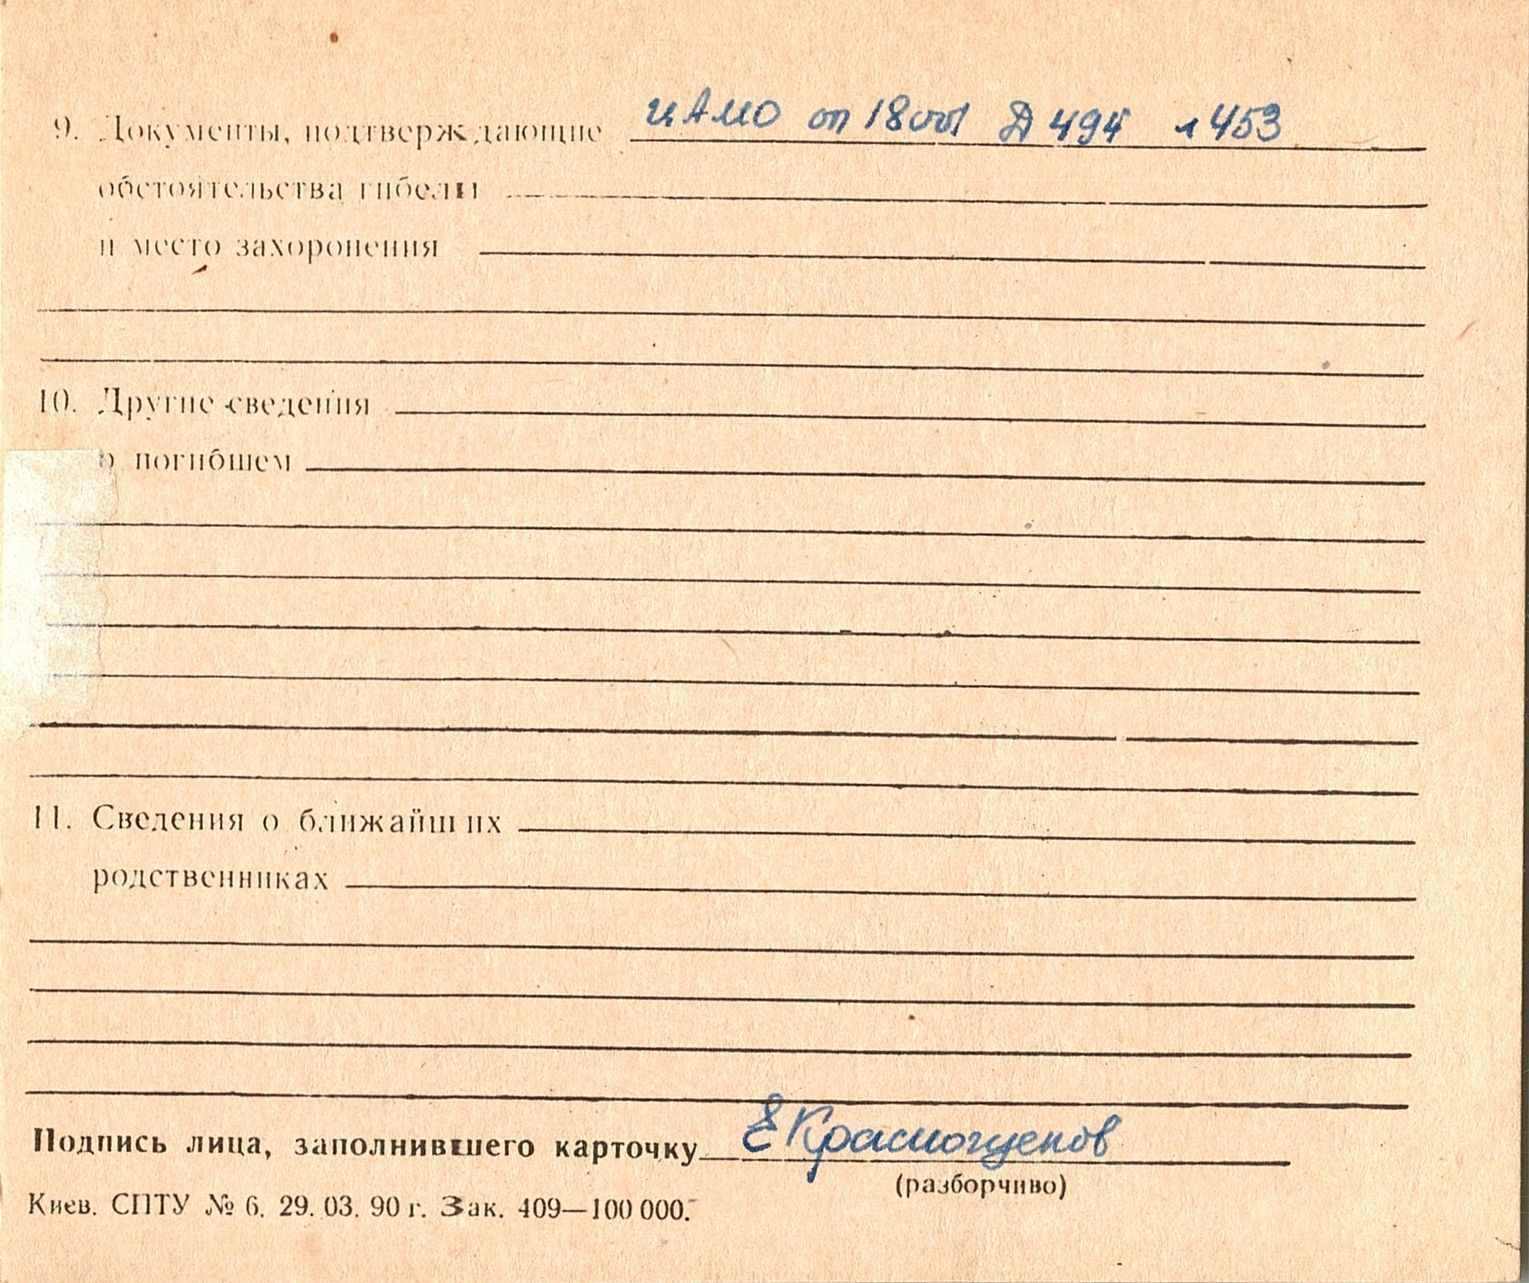 9. Документы, подтверждающие ЦАМО оп 18001 Д 494 л 453
обстоятельства гибели
и место захоронения
10. Другие сведения
о погибшем
11. Сведения о ближайших
родственниках
Подпись лица, заполнившего карточку Е Красногценов
(разборчиво)
Киев. СПТУ № 6. 29. 03. 90 г. Зак. 409—100 000.